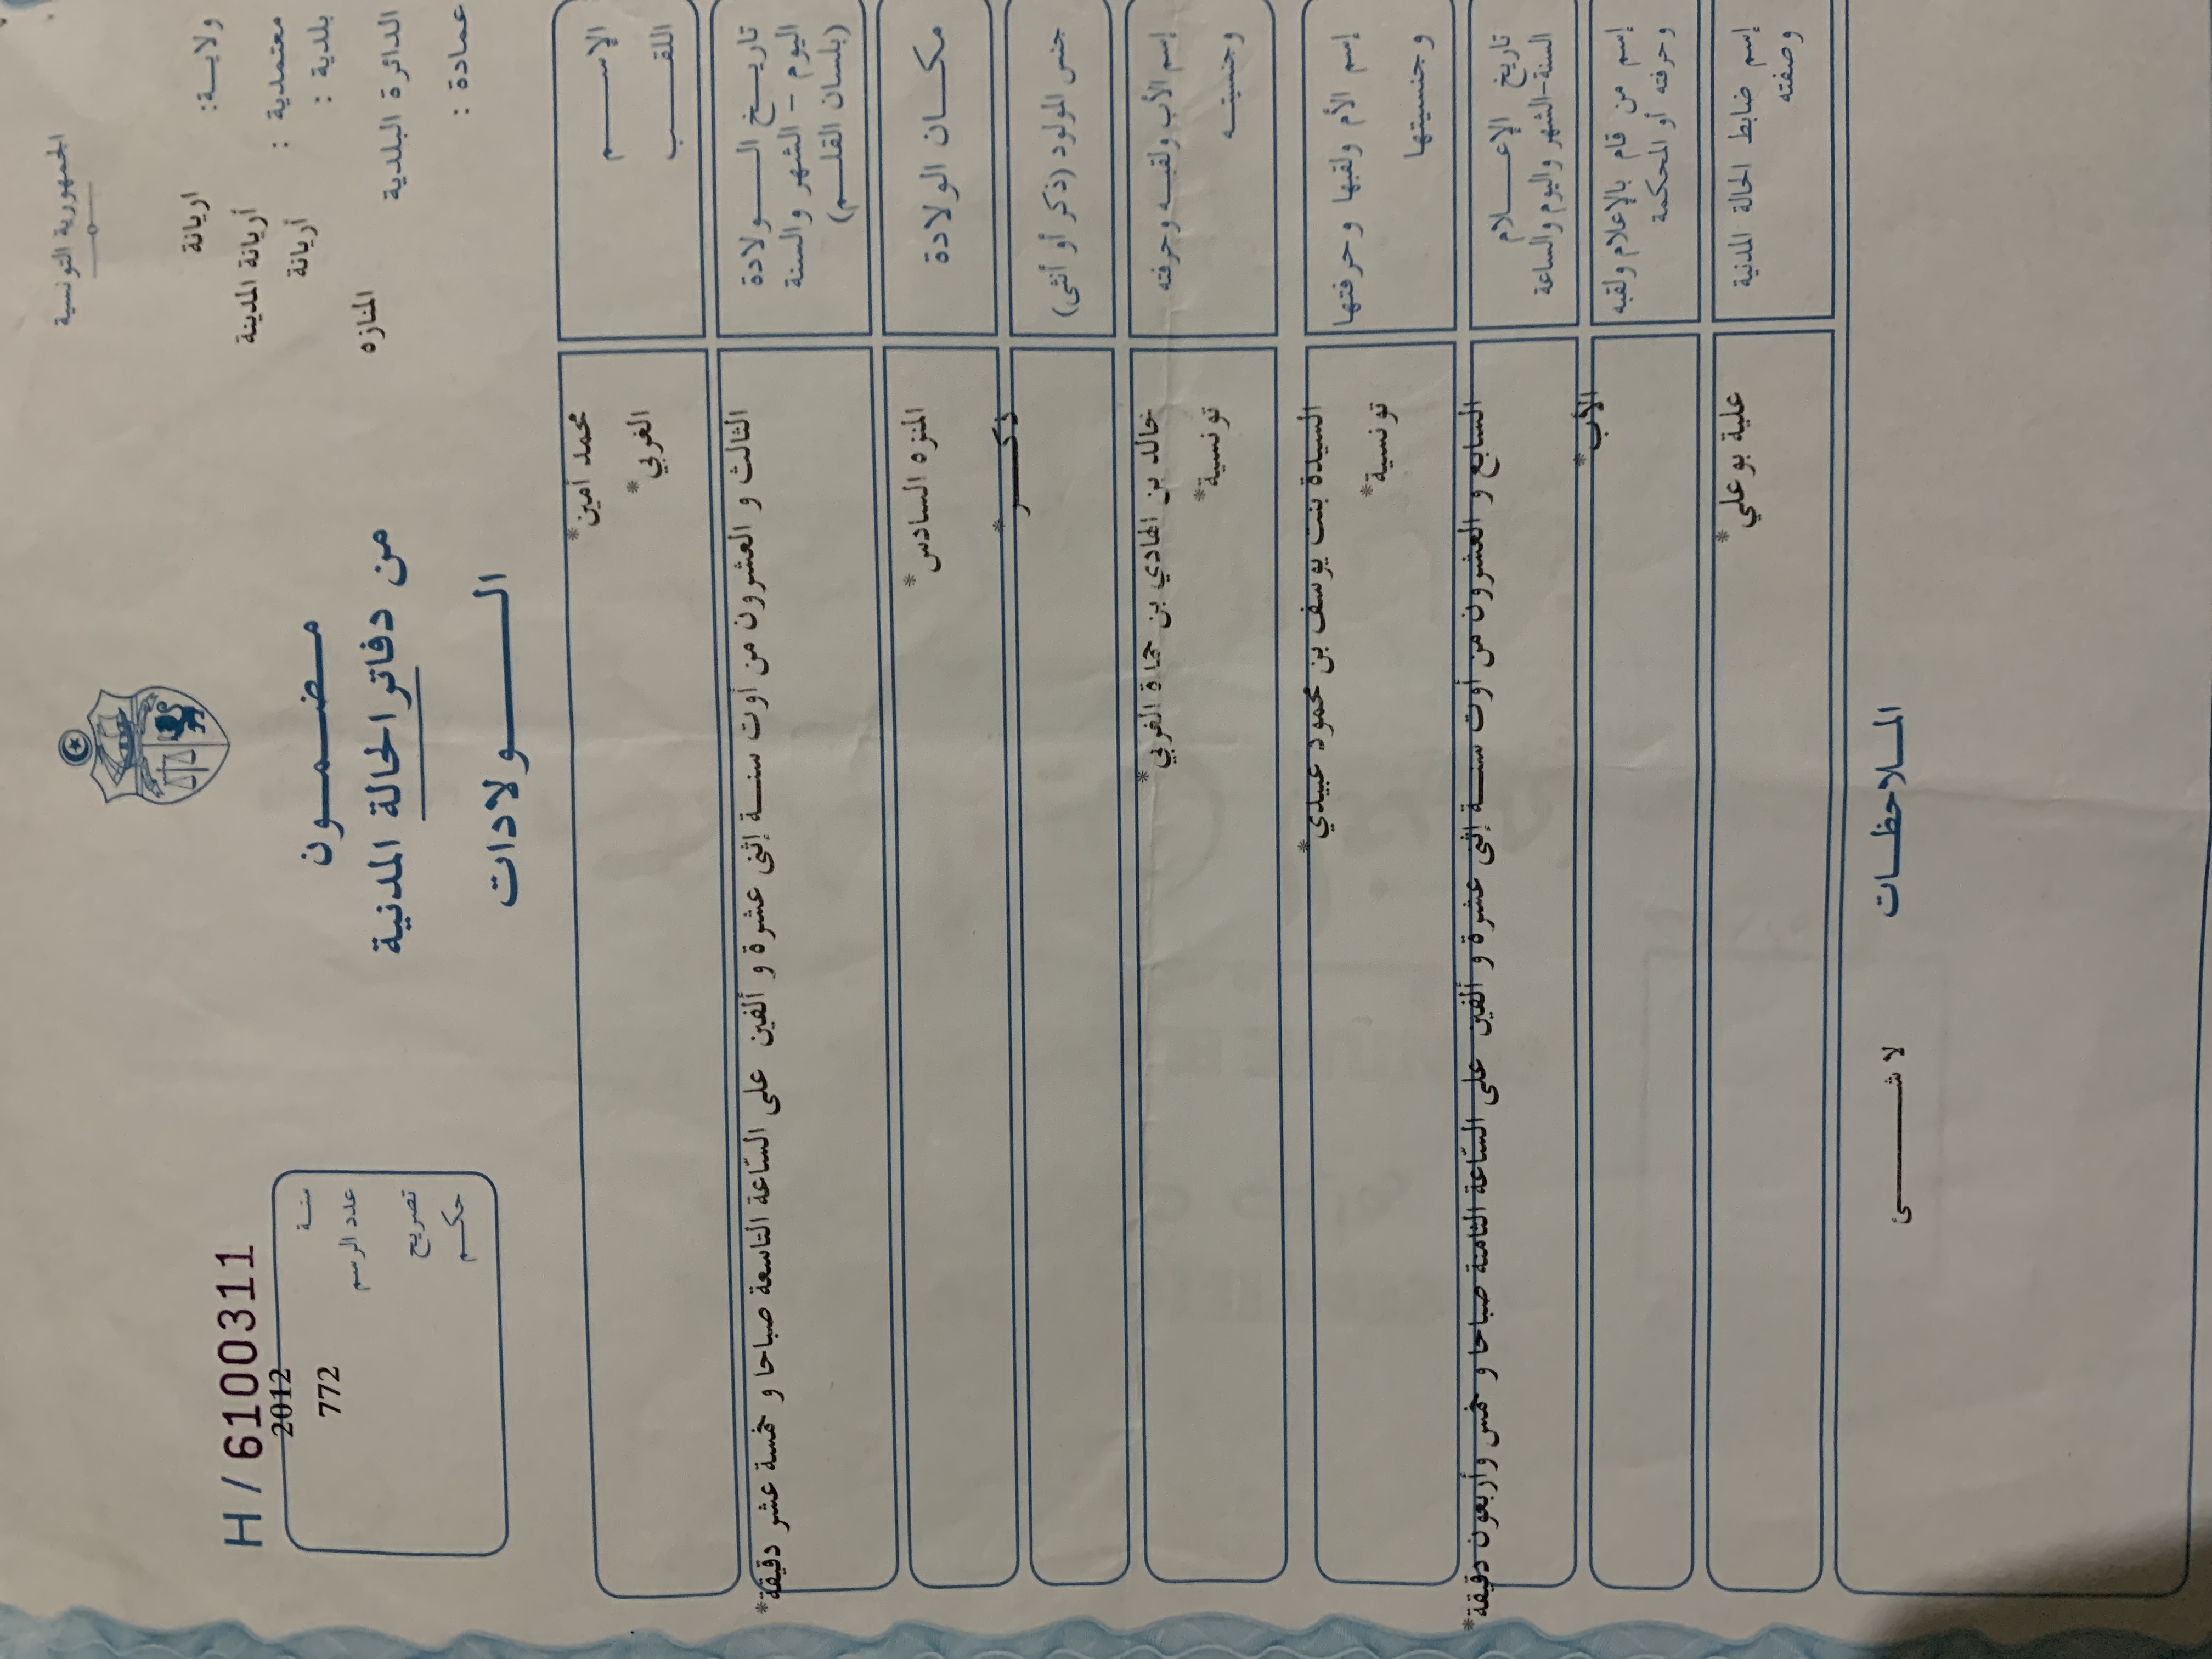 الجمهورية التونسية
ولايـــة: اريانة
معتمدية : أريانة المدينة
بلدية : أريانة
الدائرة البلدية المنازه
عمادة :
H / 6100311
سنـة 2012
عدد الرسم 772
تصريح
حكـــم
مـــضـــمـــــون
من دفاتر الحالة المدنية
الـــــــولادات
الإســـــــم محمد أمين*
اللقـــــــب الغربي*
تاريـــخ الـــــولادة
اليوم – الشهر والسنة
(بلسان القلـــم)
الثالث و العشرون من أوت سنـــة إثنى عشرة و ألفين على السّاعة التاسعة صباحا و خمسة عشر دقيقة*
مكـــان الولادة المنزه السادس*
جنس المولود (ذكر أو أنثى) ذكـــــر*
إسم الأب ولقبـــه وحرفته خالد بن الهادي بن حمادة الغربي*
وجنسيتـــه تونسية*
إسم الأم ولقبها وحرفتها السيدة بنت يوسف بن محمود عبيدي*
وجنسيتها تونسية*
تاريخ الإعـــــلام
السنة-الشهر واليوم والساعة
السابع و العشرون من أوت سنـــة إثنى عشرة و ألفين على السّاعة الثامنة صباحا و خمس وأربعون دقيقة*
إسم من قام بالإعلام ولقبه
وحرفته أو المحكمة
الأب*
إسم ضابط الحالة المدنية
وصفته
علية بوعلي*
المـــلاحظـــات
لا شـــــــئ